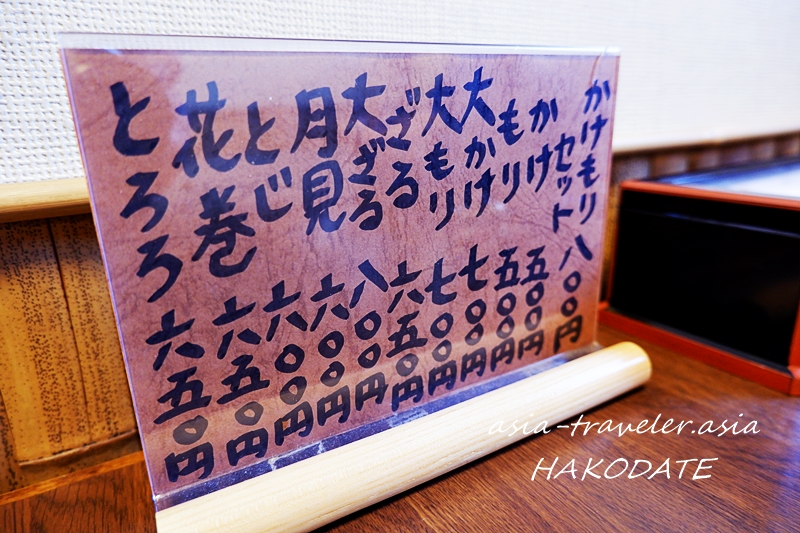 かけもりセット 八〇〇円
かけ 五〇〇円
もり 五〇〇円
大かけ 七〇〇円
大もり 七〇〇円
ざる 六五〇円
大ざる 八〇〇円
月見 六〇〇円
とじ 六〇〇円
花巻 六五〇円
とろろ 六五〇円
asia-traveler.asia
HAKODATE